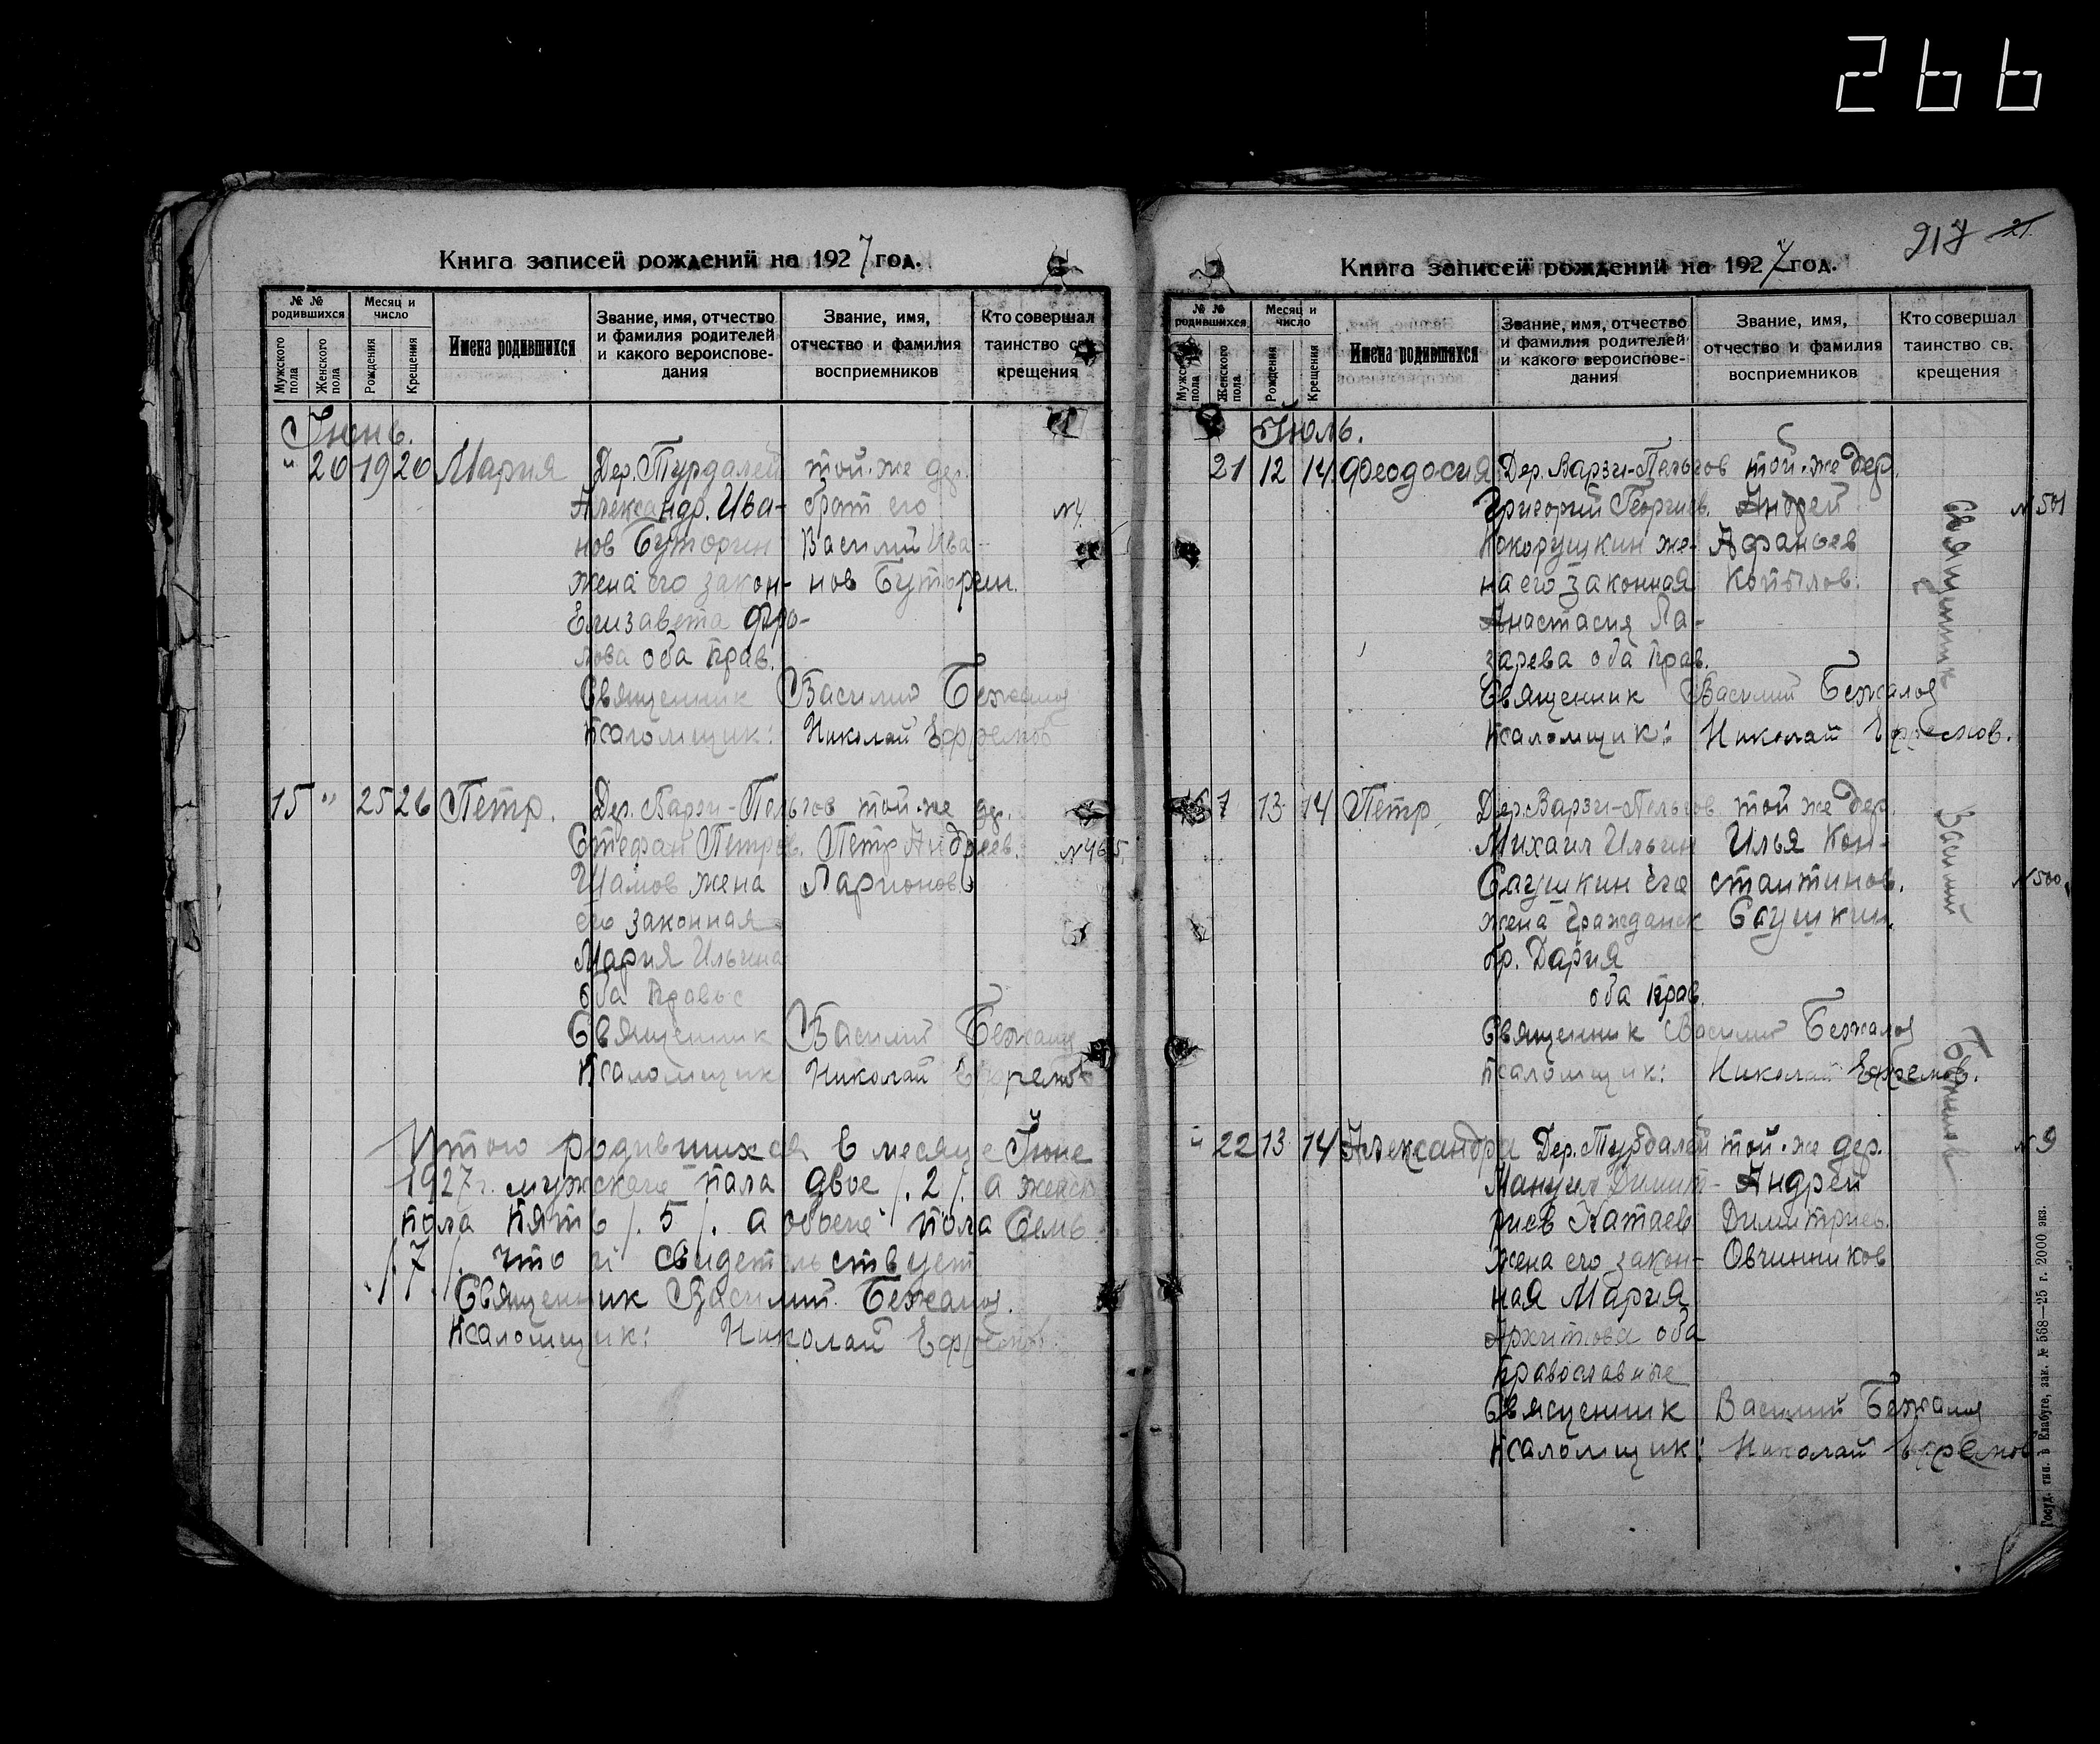 266
Книга записей рождений на 1927 год.
№ № родившихся
Мужского пола
Женского пола
Месяц и число
Рождения
Крещения
Имена родившихся
Звание, имя, отчество и фамилия родителей и какого вероисповедания
Звание, имя, отчество и фамилия восприемников
Кто совершал таинство св. крещения
Июнь.
" 20 19 20 Мария Дер. Турдалей той-же дер.
Александр. Ива- брат его
нов Буторин Василий Ива-
жена его закон- нов Буторин.
Елизавета Фро-
лова оба прав.
Священник Василий Бежанов
Псаломщик: Николай Ефремов
15 " 25 26 Петр. Дер. Варзи-Пельгов той-же де.
Стефан Петров. Петр Андреев. №465.
Шамов жена Ларионов
его законная
Мария Ильина
оба правос
Священник Василий Бежанов
Псаломщик Николай Ефремов
Итого родившихся в месяце Июне
1927 г. мужского пола двое /.2/. а женск
пола пять /.5/. а обоего пола семь
/.7/. что и свидетельствует
Священник Василий Бежанов.
Псаломщик: Николай Ефремов.
217 21
Книга записей рождений на 1927 год.
№ № родившихся
Мужского пола
Женского пола
Месяц и число
Рождения
Крещения
Имена родившихся
Звание, имя, отчество и фамилия родителей и какого вероисповедания
Звание, имя, отчество и фамилия восприемников
Кто совершал таинство св. крещения
Июль.
21 12 14 Феодосия Дер. Варзи-Пельгов той-же дер.
Григорий Георгиев. Андрей №501
Кокорушкин же- Афаньев
на его законная Копылов.
Анастасия Ла-
зарева оба прав.
Священник Василий Бежанов
Псаломщик: Николай Ефремов.
7 13 14 Петр. Дер. Варзи-Пельгов той же дер.
Михаил Ильин Илья Кон-
Слушкин его стантинов. №500
жена гражданск Слушкин.
бр. Дария
оба прав.
Священник Василий Бежанов
Псаломщик: Николай Ефремов.
" 22 13 14 Александра Дер. Турдалей той-же дер. №9
Мануил Димит- Андрей
риев Катаев Димитриев.
жена его закон- Овчинников
ная Мария
Архипова оба
православные
Священник Василий Бежанов
Псаломщик: Николай Ефремов
Священник Василий Бежанов
Госуд. тип. в Елабуге, зак. № 568—25 г. 2000 экз.